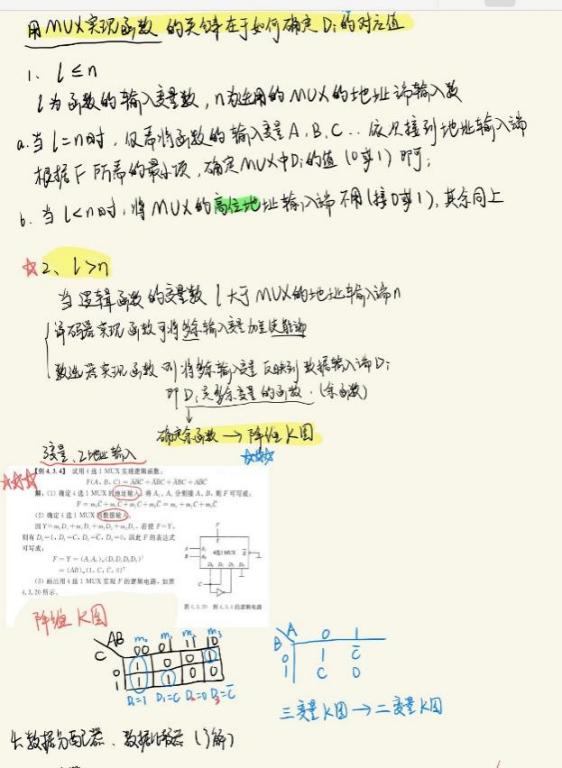 用MUX实现函数 的关键在于如何确定 Di的对应值
1、l≤n
l为函数的输入变量数，n为选用的MUX的地址端输入数
a.当l=n时，仅需将函数的输入变量A、B、C..依次接到地址输入端
根据F所需的最小项，确定MUX中Di的值(0或1)即可；
b.当l<n时，将MUX的高位地址输入端不用(接0或1)，其余同上
☆2、l>n
当逻辑函数的变量数l大于MUX的地址输入端n
译码器实现函数可将多余输入变量加至使能端
数选器实现函数 则将多余输入变量反映到数据输入端Di
即Di是多余变量的函数.(余函数)
确定余函数→降维K图
3变量，2地址输入
【例4.3.4】 试用4选1MUX实现逻辑函数：
解：(1) 确定4选1MUX的地址输入
(2) 确定4选1MUX的数据输入
可写成：
(3) 画出用4选1MUX实现F的逻辑电路，如图
4.3.20所示。
4选1MUX
图4.3.20 例4.3.4的逻辑电路
降维K图
AB m0 m1 m3
C 00 01 11 10
0 1 0 0 1
1 1 1 0 0
D0=1 D1=C
A 0 1
B
0 1 C̄
1 C 0
三变量K图→二变量K图
数据分配器、数据比较器(了解)